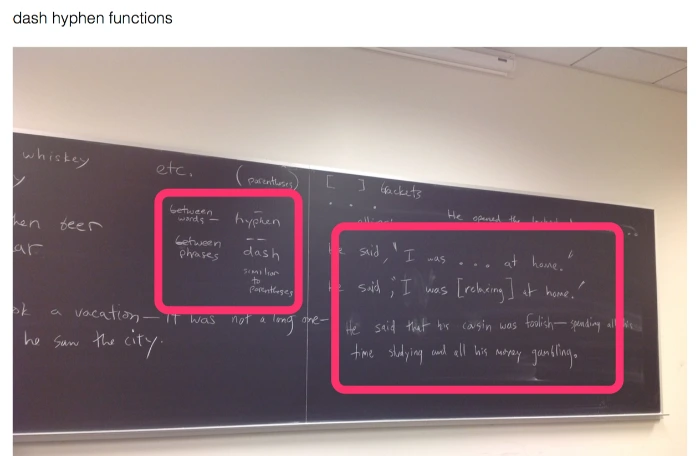 dash hyphen functions
whiskey
y
beer
ar
etc.
(parentheses)
between words — hyphen
-
between phrases
--
dash
similiar
to
parentheses
[ ] brackets
. . .
He opened the
He said, "I was . . . at home."
He said, "I was [relaxing] at home."
ok a vacation — it was not a long one —
he saw the city.
He said that his cousin was foolish — spending all his
time studying and all his money gambling.